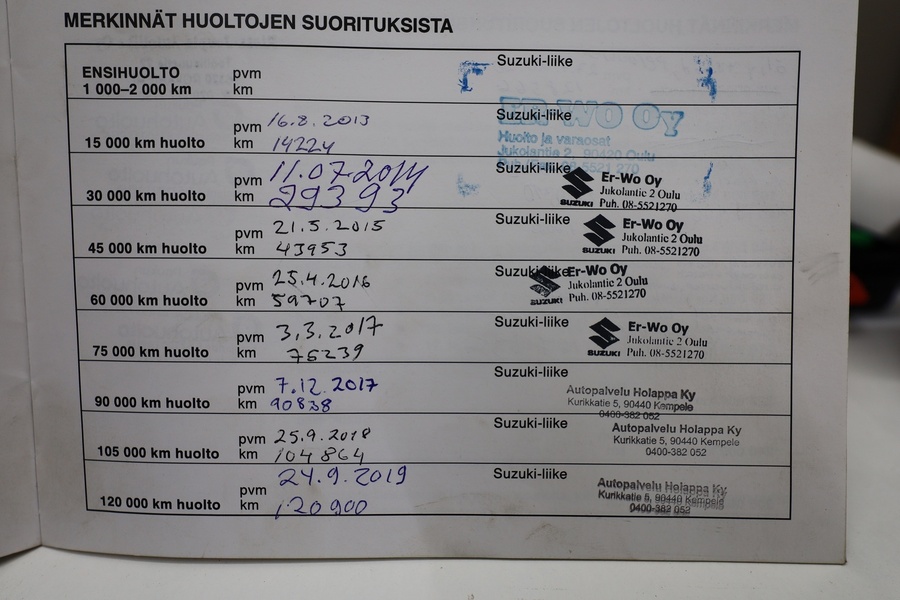 MERKINNÄT HUOLTOJEN SUORITUKSISTA
ENSIHUOLTO
1 000–2 000 km
pvm
km
Suzuki-liike
15 000 km huolto
pvm 16.8.2013
km 14224
Suzuki-liike
Er-Wo Oy
Huolto ja varaosat
Jukolantie 2, 90420 Oulu
30 000 km huolto
pvm 11.07.2014
km 29393
Suzuki-liike
SUZUKI
Er-Wo Oy
Jukolantie 2 Oulu
Puh. 08-5521270
45 000 km huolto
pvm 21.5.2015
km 43953
Suzuki-liike
SUZUKI
Er-Wo Oy
Jukolantie 2 Oulu
Puh. 08-5521270
60 000 km huolto
pvm 25.4.2016
km 59707
Suzuki-liike
SUZUKI
Er-Wo Oy
Jukolantie 2 Oulu
Puh. 08-5521270
75 000 km huolto
pvm 3.3.2017
km 75239
Suzuki-liike
SUZUKI
Er-Wo Oy
Jukolantie 2 Oulu
Puh. 08-5521270
90 000 km huolto
pvm 7.12.2017
km 90838
Suzuki-liike
Autopalvelu Holappa Ky
Kurikkatie 5, 90440 Kempele
0400-382 052
105 000 km huolto
pvm 25.9.2018
km 104864
Suzuki-liike
Autopalvelu Holappa Ky
Kurikkatie 5, 90440 Kempele
0400-382 052
120 000 km huolto
pvm 24.9.2019
km 120900
Suzuki-liike
Autopalvelu Holappa Ky
Kurikkatie 5, 90440 Kempele
0400-382 052